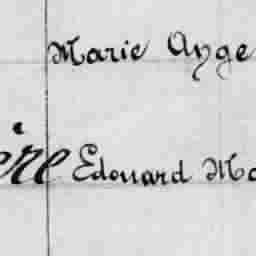 Marie Ange
ère Edouard Ma